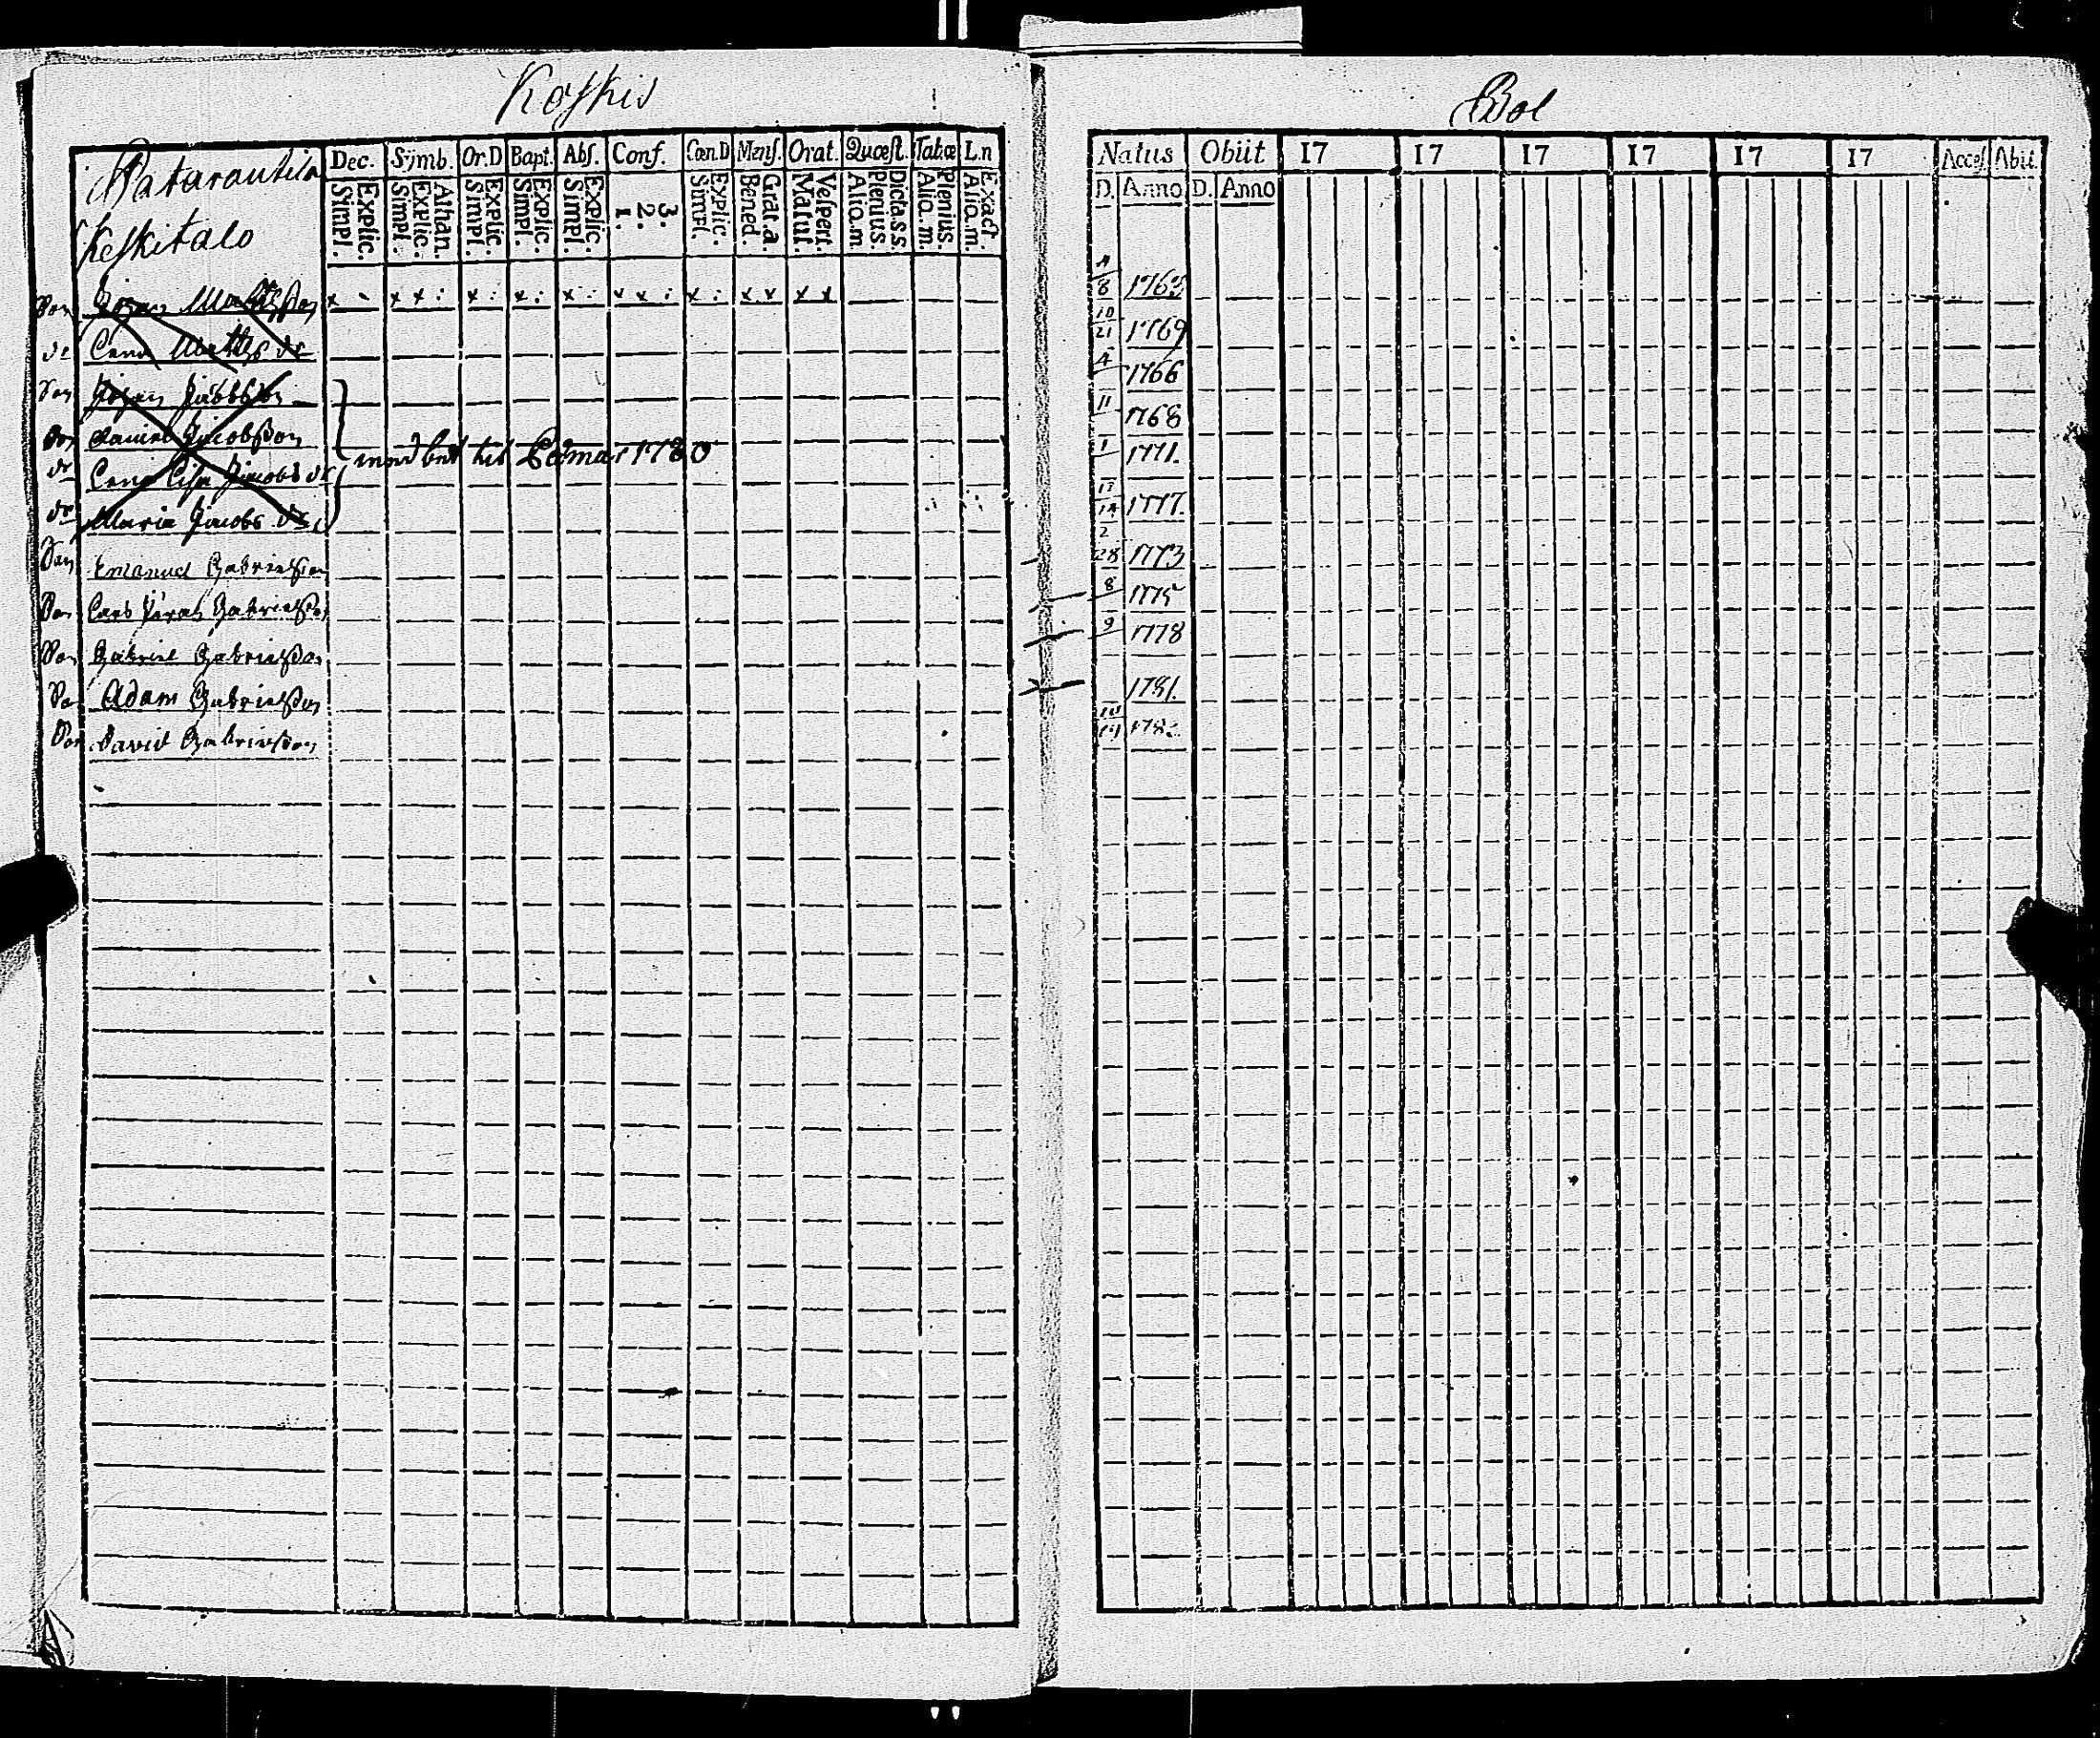 Koskis
Bol
Patarautila
Keskitalo
Dec. Symb. Or.D Bapt. Abs. Conf. Cœn.D Mens. Orat. Quæst. Tabæ Ln
Explic. Simpl. Athan. Explic. Simpl. Explic. Simpl. Explic. Simpl. Explic. Simpl. 3. 2. 1. Explic. Simpl. Grat.a. Bened. Vespert. Matut. Dicta.s.s. Plenius. Alio.m. Plenius. Alia.m. Exact. Alia.m.
Natus Obiit 17 17 17 17 17 17 Acces. Abit.
D. Anno D. Anno
Son Johan Mattsson x - x x : x : x : x : x x : x : x x x x 4/8 1763
dr Lena Matts dr 10/21 1769
Son Johan Jacobsson 4 1766
Son Daniel Jacobsson 11 1768
med bev till 1780
dr Lena Lisa Jacobs dr 1 1771.
dr Maria Jacobs dr 1777.
Son Emanuel Gabrielsson 2/28 1773
Son Lars Gabrielsson 8 1775
Son Gabriel Gabrielsson 9 1778
Son Adam Gabrielsson 1781.
Son David Gabrielsson